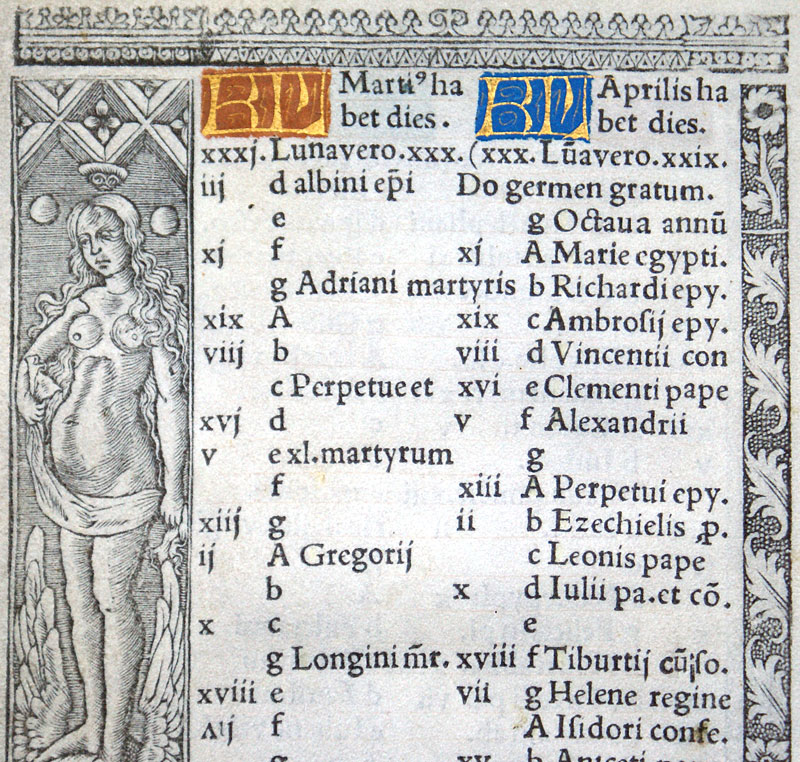 Marti⁹ ha
bet dies .
xxxj. Lunavero.xxx.
iij d albini ep̄i
e
xj f
g Adriani martyris
xix A
viij b
c Perpetue et
xvj d
v e xl.martyrum
f
xiij g
ij A Gregorij
b
x c
g Longini m̄r.
xviii e
vij f
g
Aprilis ha
bet dies.
(xxx. Lūavero.xxix.
Do germen gratum.
g Octaua annū
xj A Marie egypti.
b Richardi epy.
xix c Ambroſij epy.
viii d Vincentii con
xvi e Clementi pape
v f Alexandrii
g
xiii A Perpetui epy.
ii b Ezechielis ꝓ.
c Leonis pape
x d Iulii pa.et cō.
e
xviii f Tiburtij cū ſo.
vii g Helene regine
A Iſidori confe.
xv b Aniceti